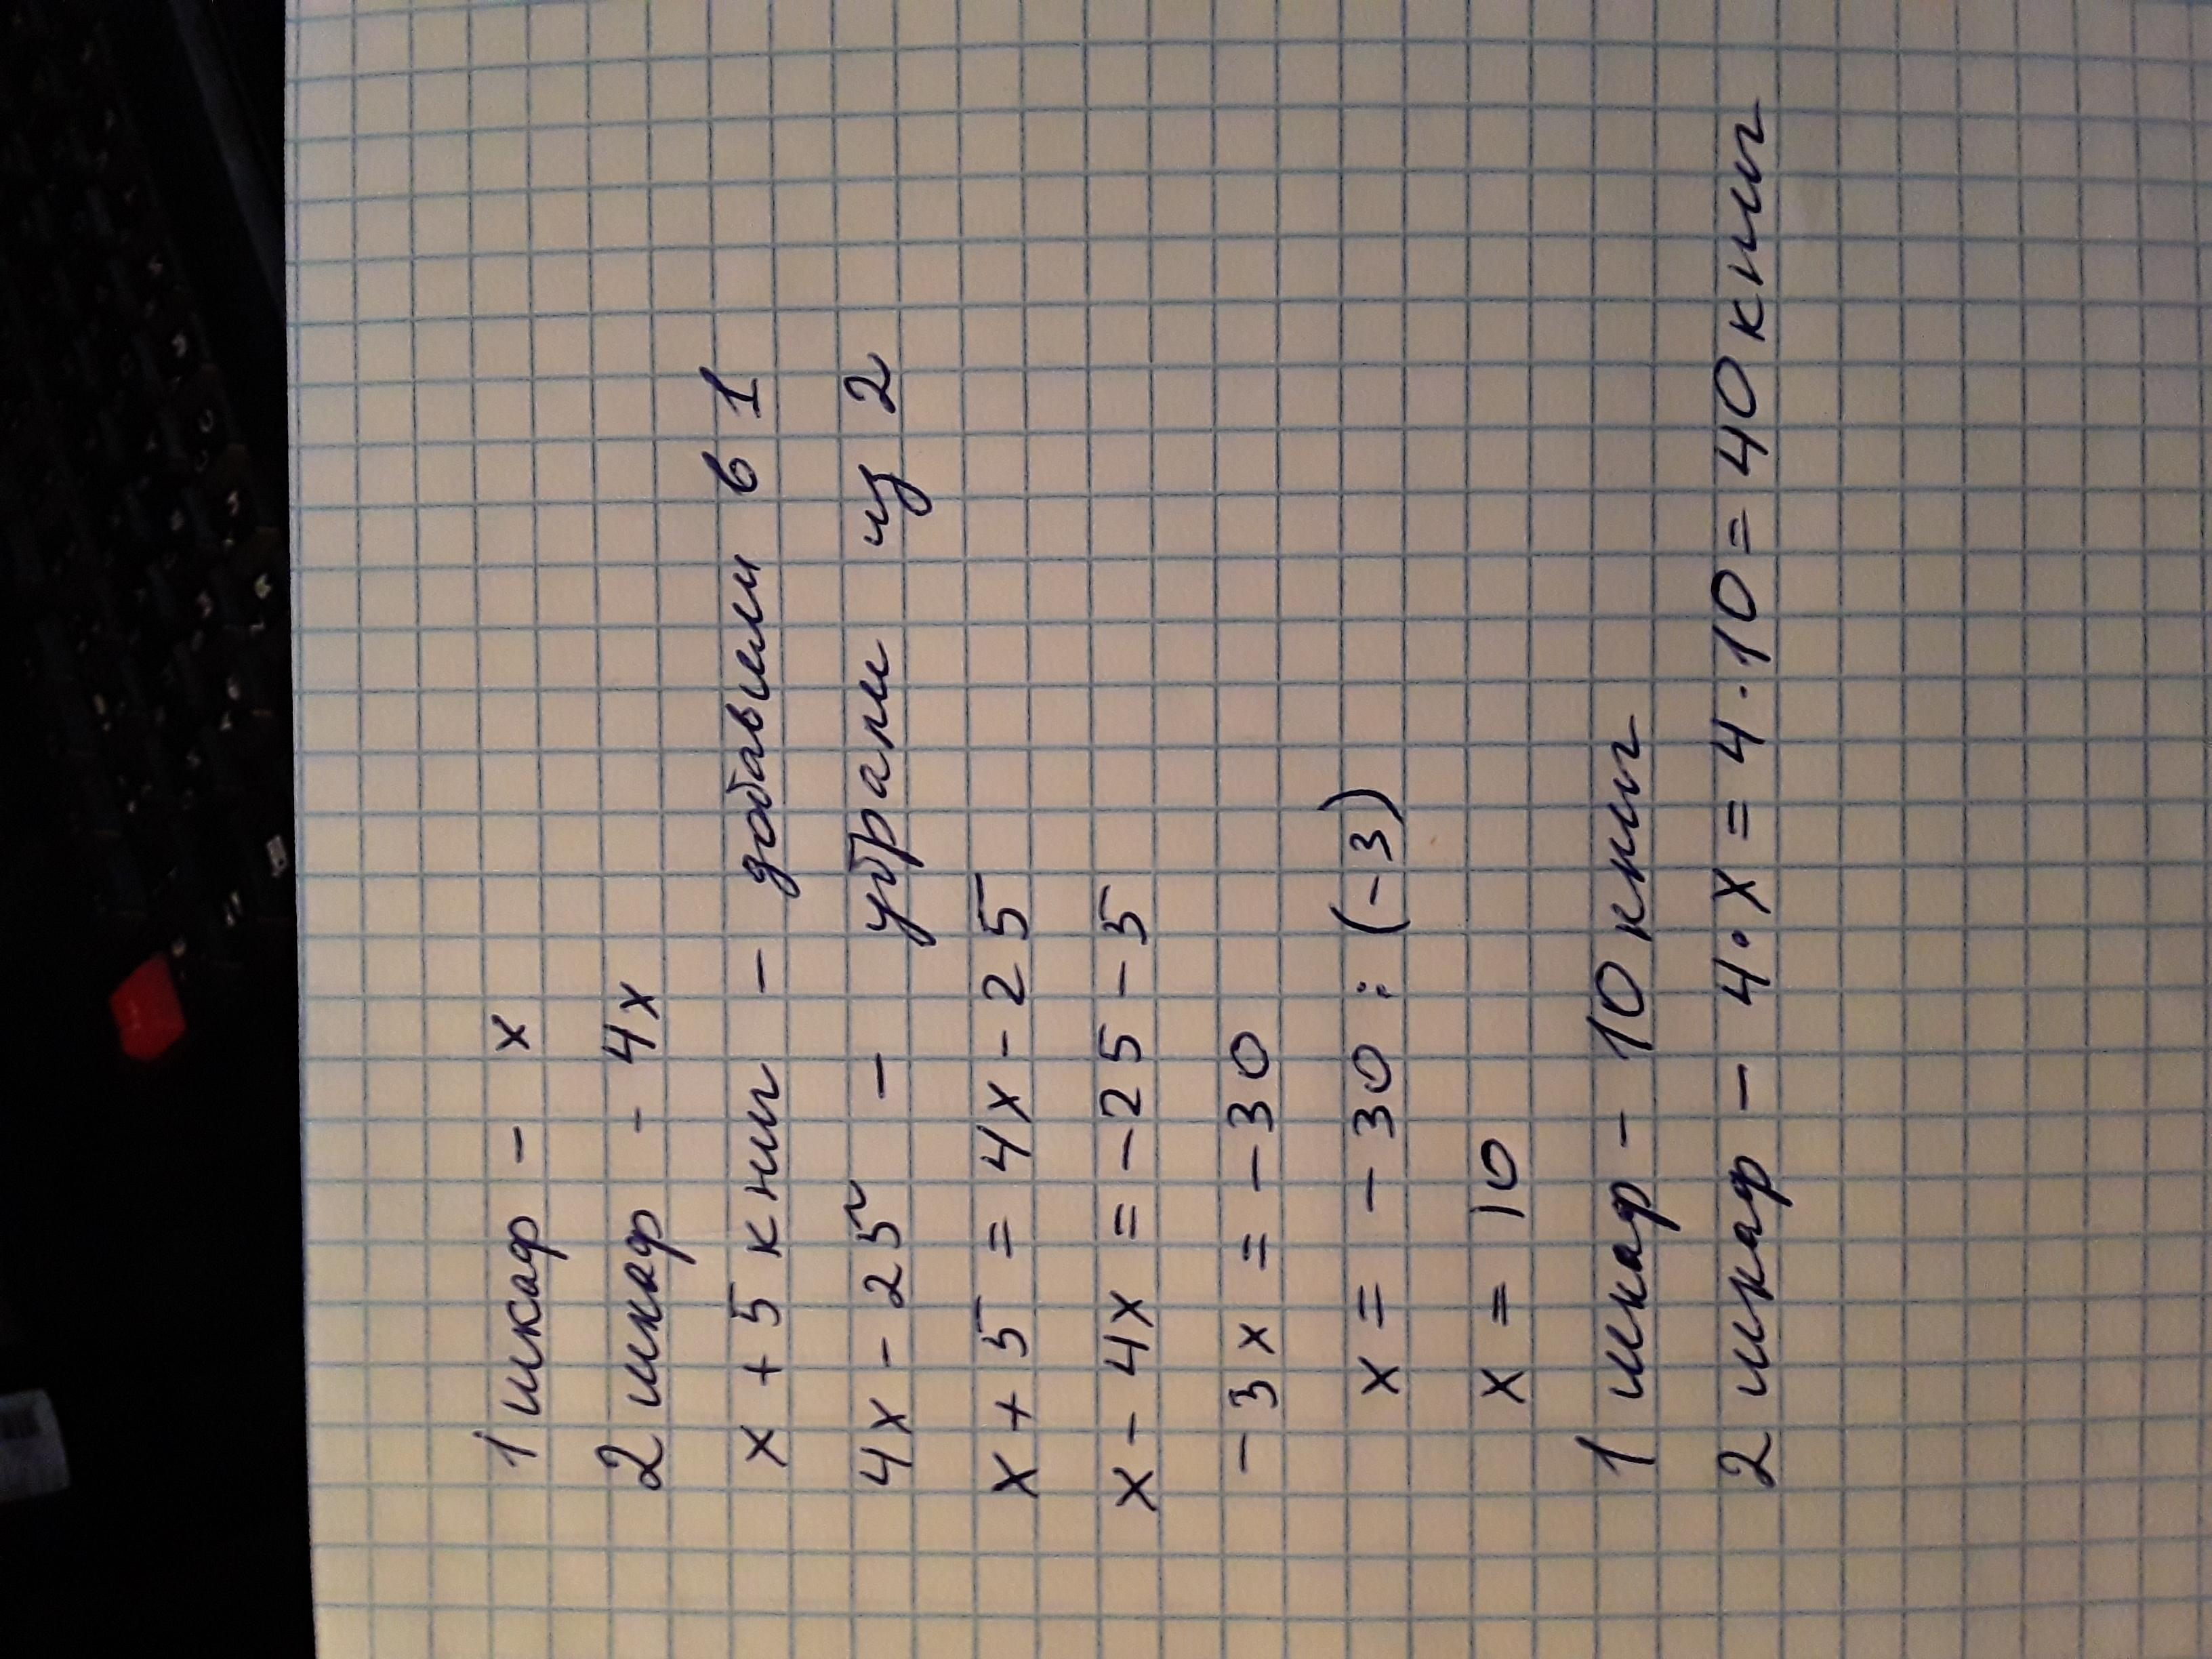 1 шкаф - x
2 шкаф - 4x
x + 5 книг - добавили в 1
4x - 25 - убрали из 2
x + 5 = 4x - 25
x - 4x = -25 - 5
-3x = -30
x = -30 : (-3)
x = 10
1 шкаф - 10 книг
2 шкаф - 4·x = 4·10 = 40 книг